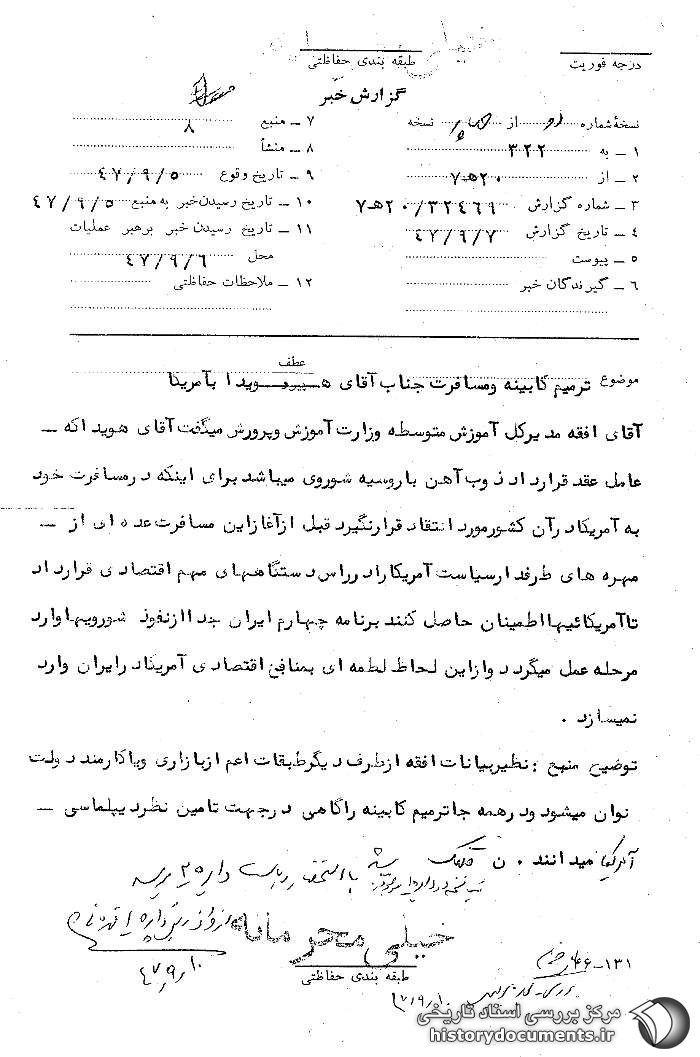 طبقه بندی حفاظتی
درجه فوریت
گزارش خبر
نسخهٔ شماره از نسخه
۱ ــ به ۳۲۲
۲ ــ از ۲۰هـ۷
۳ ــ شماره گزارش ۲۰/۳۲۴۶۹هـ۷
۴ ــ تاریخ گزارش ۴۷/۹/۷
۵ ــ پیوست
۶ ــ گیرندگان خبر
۷ ــ منبع ۸
۸ ــ منشأ
۹ ــ تاریخ وقوع ۴۷/۹/۵
۱۰ ــ تاریخ رسیدن خبر به منبع ۴۷/۹/۵
۱۱ ــ تاریخ رسیدن خبر برهبر عملیات
محل ۴۷/۹/۶
۱۲ ــ ملاحظات حفاظتی
عطف
موضوع ترمیم کابینه ومسافرت جناب آقای هویدا بآمریکا
آقای افقه مدیرکل آموزش متوسطه وزارت آموزش وپرورش میگفت آقای هویدا که ــ
عامل عقد قرارداد ذوب آهن باروسیه شوروی میباشد برای اینکه درمسافرت خود
به آمریکادرآن کشورمورد انتقاد قرارنگیرد قبل ازآغازاین مسافرت عده ای از ــ
مهره های طرفدارسیاست آمریکارادرراس دستگاههای مهم اقتصادی قرارداد
تاآمریکائیهااطمینان حاصل کنند برنامه چهارم ایران جداازنفوذ شورویهاوارد
مرحله عمل میگردد وازاین لحاظ لطمه ای بمنافع اقتصادی آمریکادرایران وارد
نمیسازد .
توضیح منبع : نظیربیانات افقه ازطرف دیگرطبقات اعم ازبازاری ویاکارمند دولت
نوان میشود ودرهمه جاترمیم کابینه راگاهی درجهت تامین نظردیپلماسی ــ
آمریکا میدانند . ن
خیلی محرمانه
طبقه بندی حفاظتی
۴۷/۹/۱۰
۱۳۱-۴۶
۴۷/۹/۱۰
مرکز بررسی اسناد تاریخی
historydocuments.ir